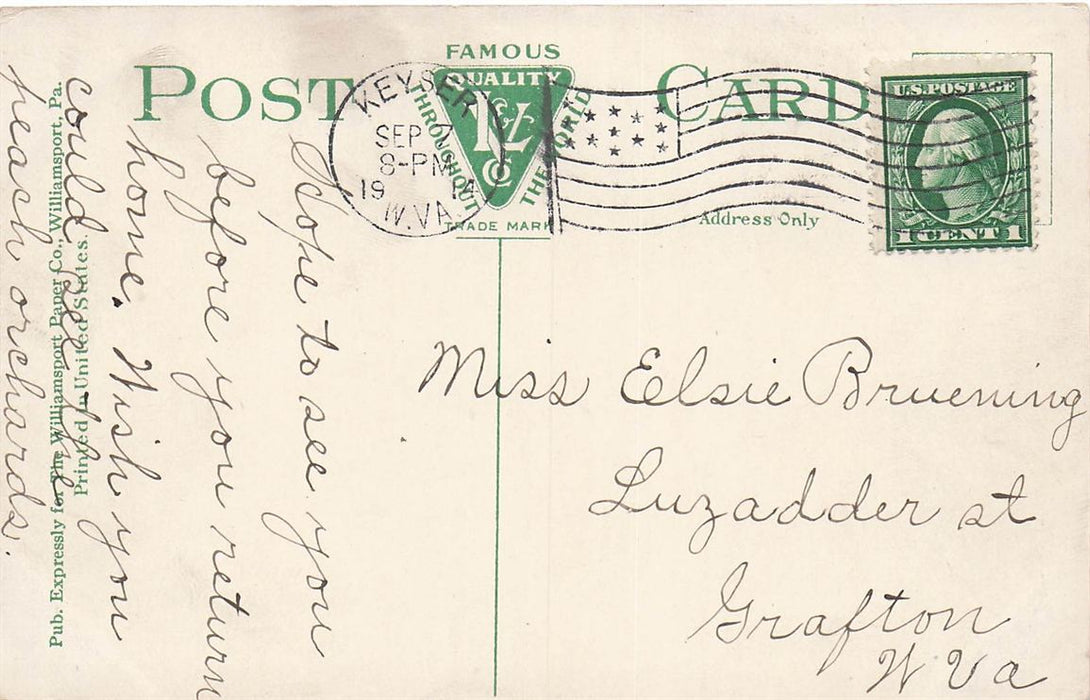 POST CARD
FAMOUS
QUALITY
THROUGHOUT
THE WORLD
I & L
Co
TRADE MARK
KEYSER
SEP
8-PM
1914
W.VA.
U.S. POSTAGE
1 CENT 1
Address Only
Hope to see you
before you return
home. Wish you
could see the
peach orchards.
Pub. Expressly for The Williamsport Paper Co., Williamsport, Pa.
Printed in United States.
Miss Elsie Bruening
Luzadder st
Grafton
W Va